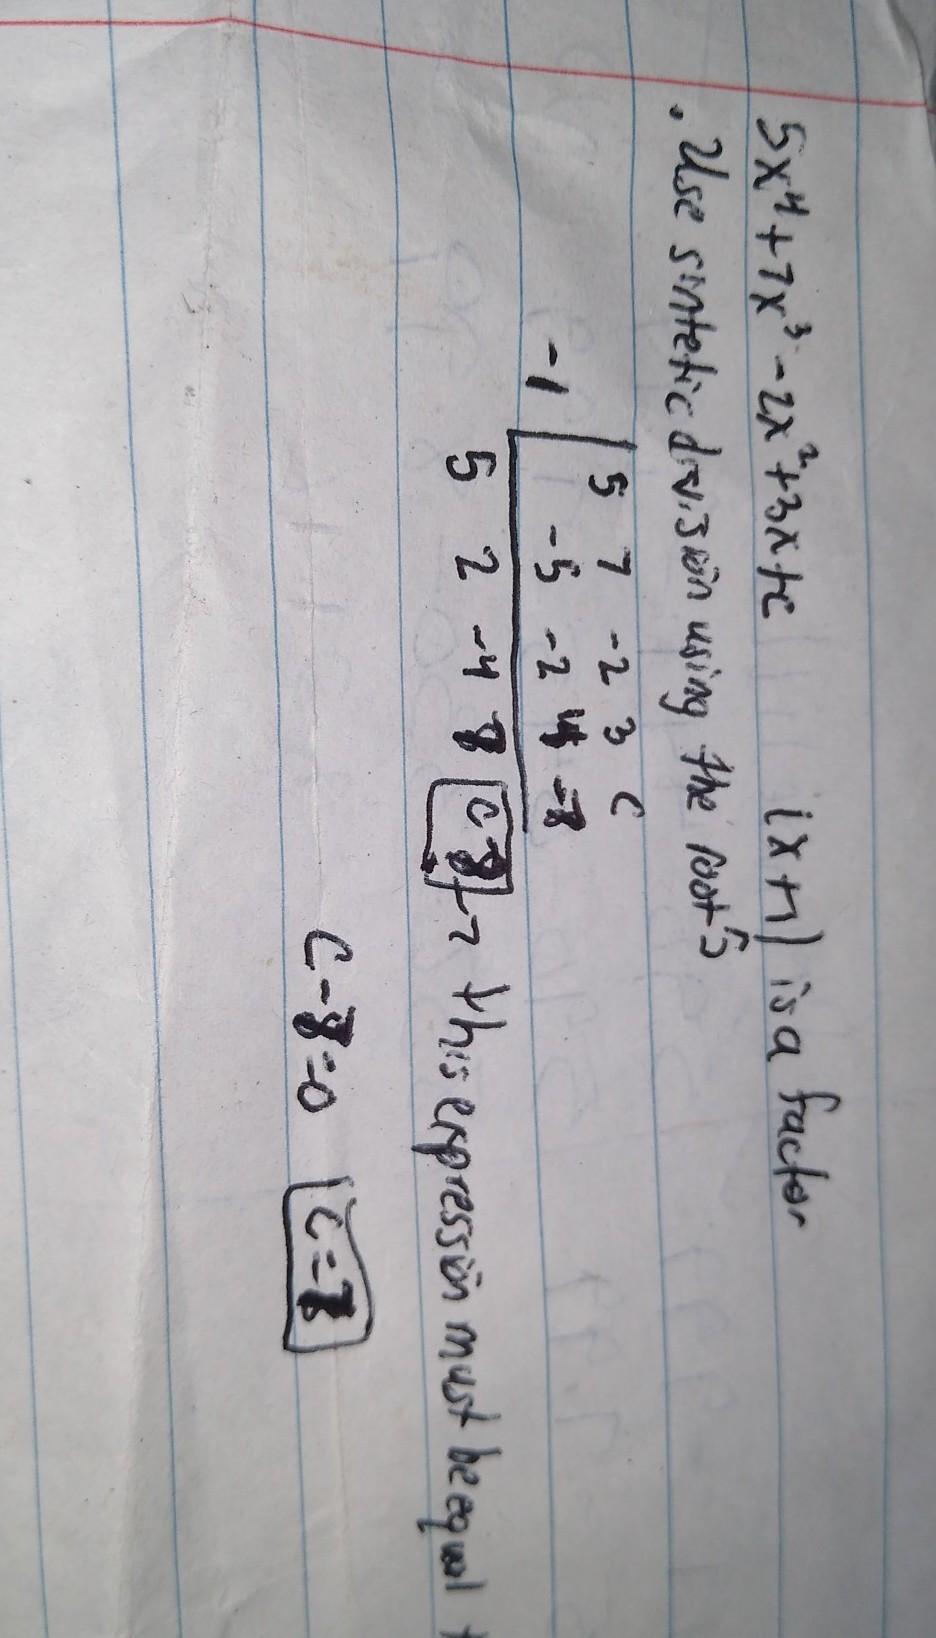 5x⁴+7x³-2x²+3x+c (x+1) is a factor
. Use sintetic division using the root's
5 7 -2 3 c
-1 -5 -2 4 -8
5 2 -4 8 c-8 → this expression must be equal
c-8=0 c=8